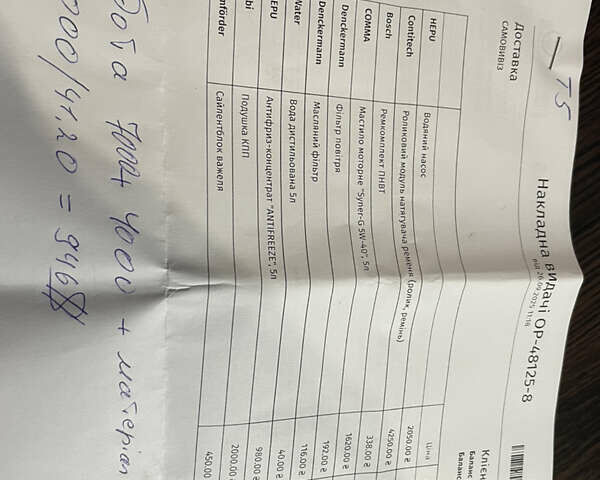 T5
Накладна видачі OP-48125-8
від 26.09.2025 11:18
Доставка
САМОВИВІЗ
Клієн
Баланс
Баланс
Ціна
HEPU Водяний насос 2050.00 ₴
Contitech Роликовий модуль натягувача ременя (ролик, ремінь) 4250.00 ₴
Bosch Ремкомплект ПНВТ 338.00 ₴
COMMA Мастило моторне "Syner-G 5W-40", 5л 1620.00 ₴
Denckermann Фільтр повітря 192.00 ₴
Denckermann Масляний фільтр 116.00 ₴
Water Вода дистильована 5л 40.00 ₴
EPU Антифриз-концентрат "ANTIFREEZE", 5л 980.00 ₴
bi Подушка КПП 2000.00 ₴
mförder Сайлентблок важеля 450.00
бота 7000+ 4000 + матеріал
000/41,20 = 946$